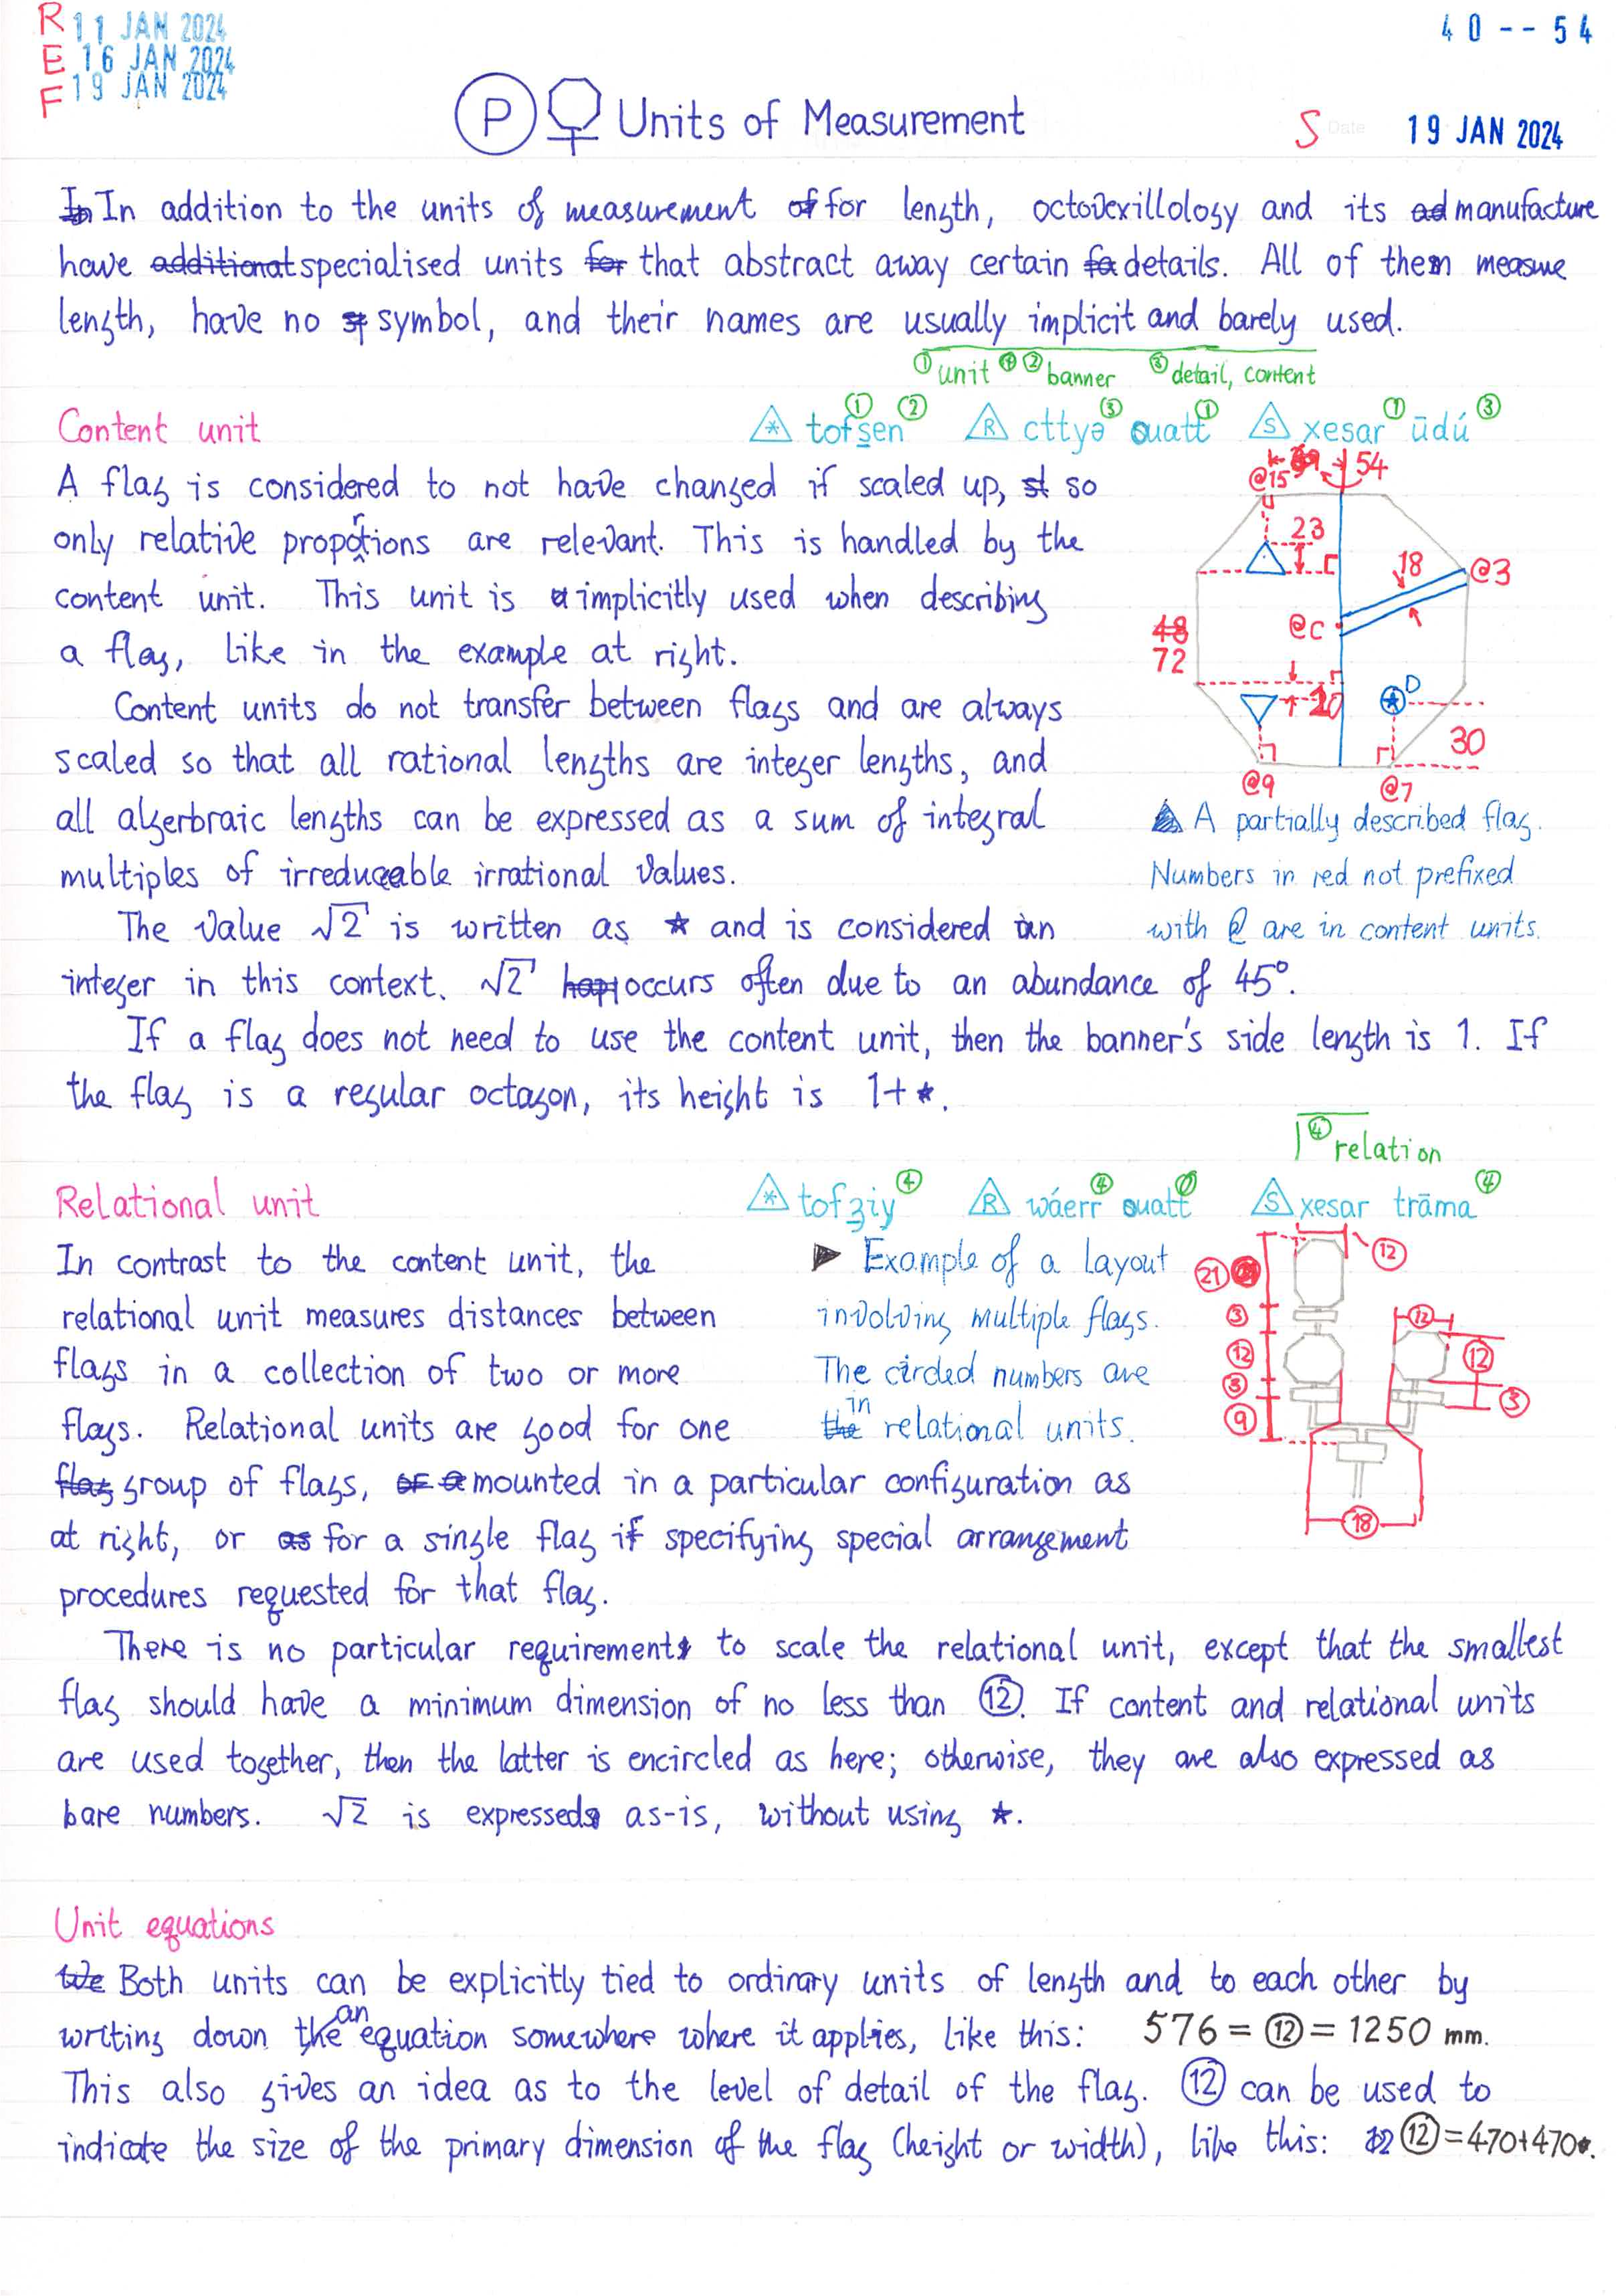 R 11 JAN 2024
E 16 JAN 2024
F 19 JAN 2024
40--54
P Units of Measurement
S Date 19 JAN 2024
In In addition to the units of measurement of for length, octovexillology and its ad manufacture
have additional specialised units for that abstract away certain fo details. All of them measure
length, have no sy symbol, and their names are usually implicit and barely used.
① unit ④ ② banner ③ detail, content
Content unit
* tofsen ① ② R cttyə ouatt ③ ① S xesar ūdú ① ③
A flag is considered to not have changed if scaled up, st so
only relative propotrions are relevant. This is handled by the
content unit. This unit is u implicitly used when describing
a flag, like in the example at right.
Content units do not transfer between flags and are always
scaled so that all rational lengths are integer lengths, and
all algerbraic lengths can be expressed as a sum of integral
multiples of irreduceable irrational values.
The value √2 is written as ★ and is considered an
integer in this context. √2 hap occurs often due to an abundance of 45°.
If a flag does not need to use the content unit, then the banner's side length is 1. If
the flag is a regular octagon, its height is 1+★.
@15
54
23
18
@3
@c
48
72
20
D
30
@9
@7
A partially described flag.
Numbers in red not prefixed
with @ are in content units.
④ relation
Relational unit
* tofʒiy ④ R wáerr ouatt ④ ① S xesar trāma ④
In contrast to the content unit, the
relational unit measures distances between
flags in a collection of two or more
flags. Relational units are good for one
flag group of flags, or a mounted in a particular configuration as
at right, or as for a single flag if specifying special arrangement
procedures requested for that flag.
▶ Example of a layout
involving multiple flags.
The circled numbers are
the in relational units.
⑫
㉑
③
⑫
③
⑨
⑫
⑫
③
⑱
There is no particular requirements to scale the relational unit, except that the smallest
flag should have a minimum dimension of no less than ⑫. If content and relational units
are used together, then the latter is encircled as here; otherwise, they are also expressed as
bare numbers. √2 is expressed as-is, without using ★.
Unit equations
We Both units can be explicitly tied to ordinary units of length and to each other by
writing down the an equation somewhere where it applies, like this: 576 = ⑫ = 1250 mm.
This also gives an idea as to the level of detail of the flag. ⑫ can be used to
indicate the size of the primary dimension of the flag (height or width), like this: 12 ⑫ = 470+470★.